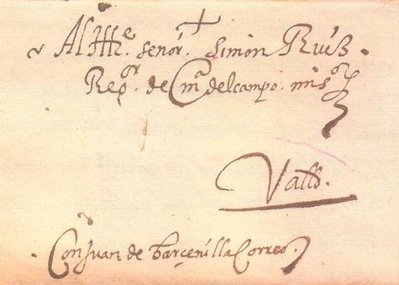 Al Ille. señor. Simon Ruiz.
Regor. de Ma del campo. mi sor
Valld.
Con Juan de barçenilla Correo.